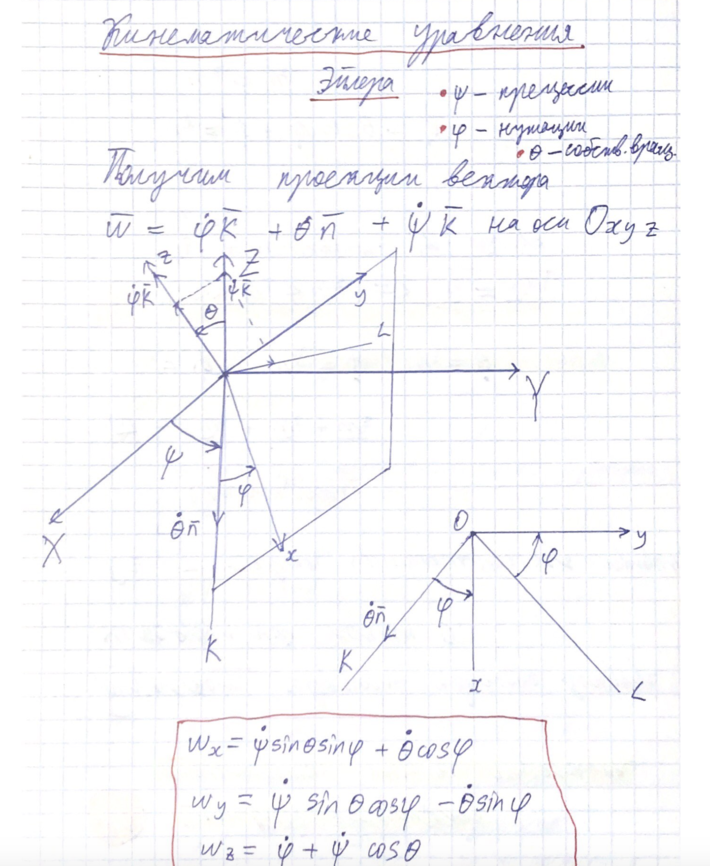 Кинематические уравнения
Эйлера
• ψ – прецессии
• φ – нутации
• θ – собств. вращ.
Получим проекции вектора
w̅ = φ̇k̅ + θ̇n̅ + ψ̇K̅ на оси Oxyz
z
Z
φ̇k̅
ψ̇K̅
θ
y
L
Y
ψ
φ
X
θ̇n̅
x
K
O
y
φ
φ
θ̇n̅
K
x
L
wx = ψ̇ sinθ sinφ + θ̇ cosφ
wy = ψ̇ sinθ cosφ – θ̇ sinφ
wz = φ̇ + ψ̇ cosθ